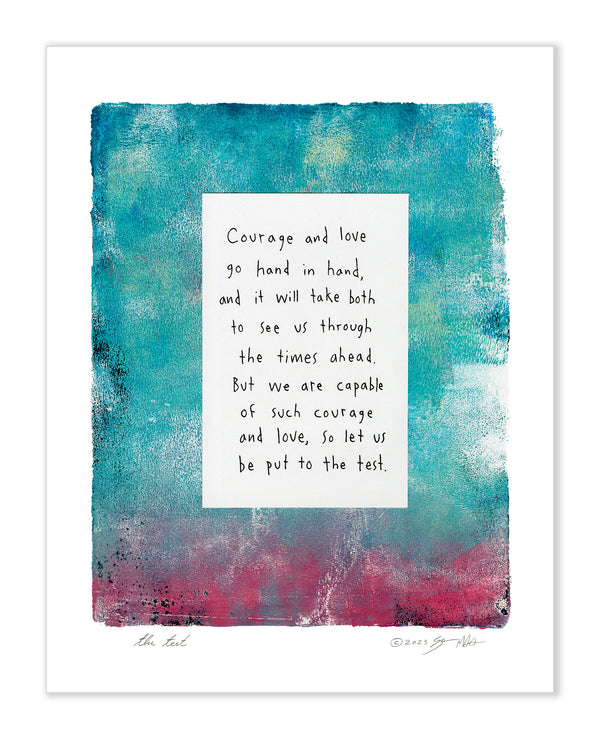 Courage and love
go hand in hand,
and it will take both
to see us through
the times ahead.
But we are capable
of such courage
and love, so let us
be put to the test.
the test
©2023